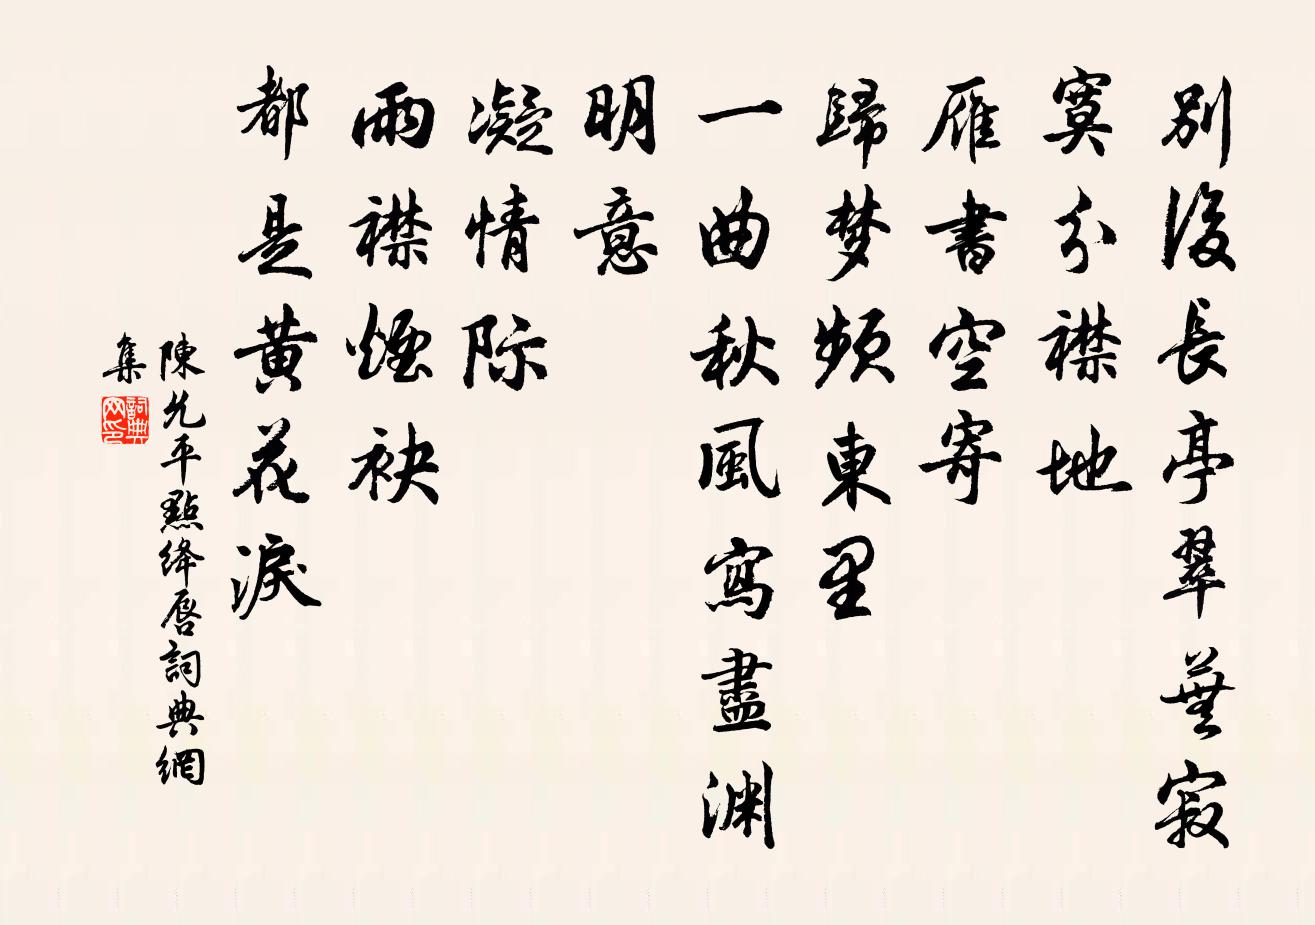 別後長亭翠蕪寂
寞分襟地
雁書空寄
歸梦頻東里
一曲秋風寫盡淵
明意
凝情际
雨襟煙袂
都是黃花淚
陳允平點絳唇詞典網
集
詞典
网印